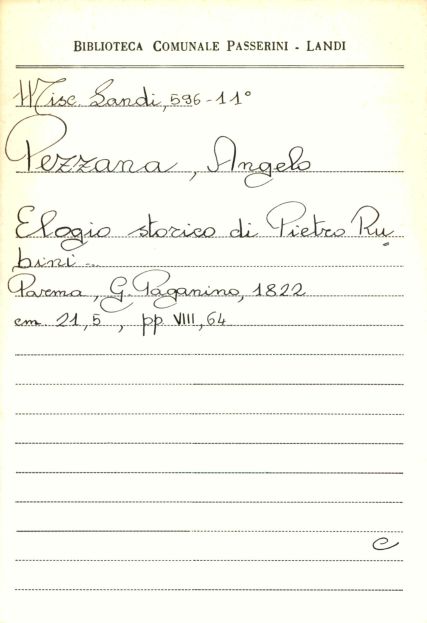 BIBLIOTECA COMUNALE PASSERINI - LANDI
Misc. Landi, 596 - 11°
Pezzana, Angelo
Elogio storico di Pietro Ru
bini...
Parma, G. Paganino, 1822
cm. 21,5, pp VIII, 64
e